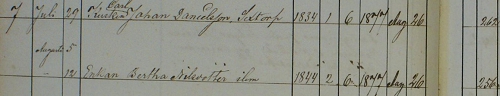 7 Juli 29 Carl Johan Danielsson, Sextorp 1834 1 6 1877 Aug 26 262
Augusti 5
" 12 Enkan Bertha Nilsdotter ibm 1844 2 6 1877 Aug 26 256